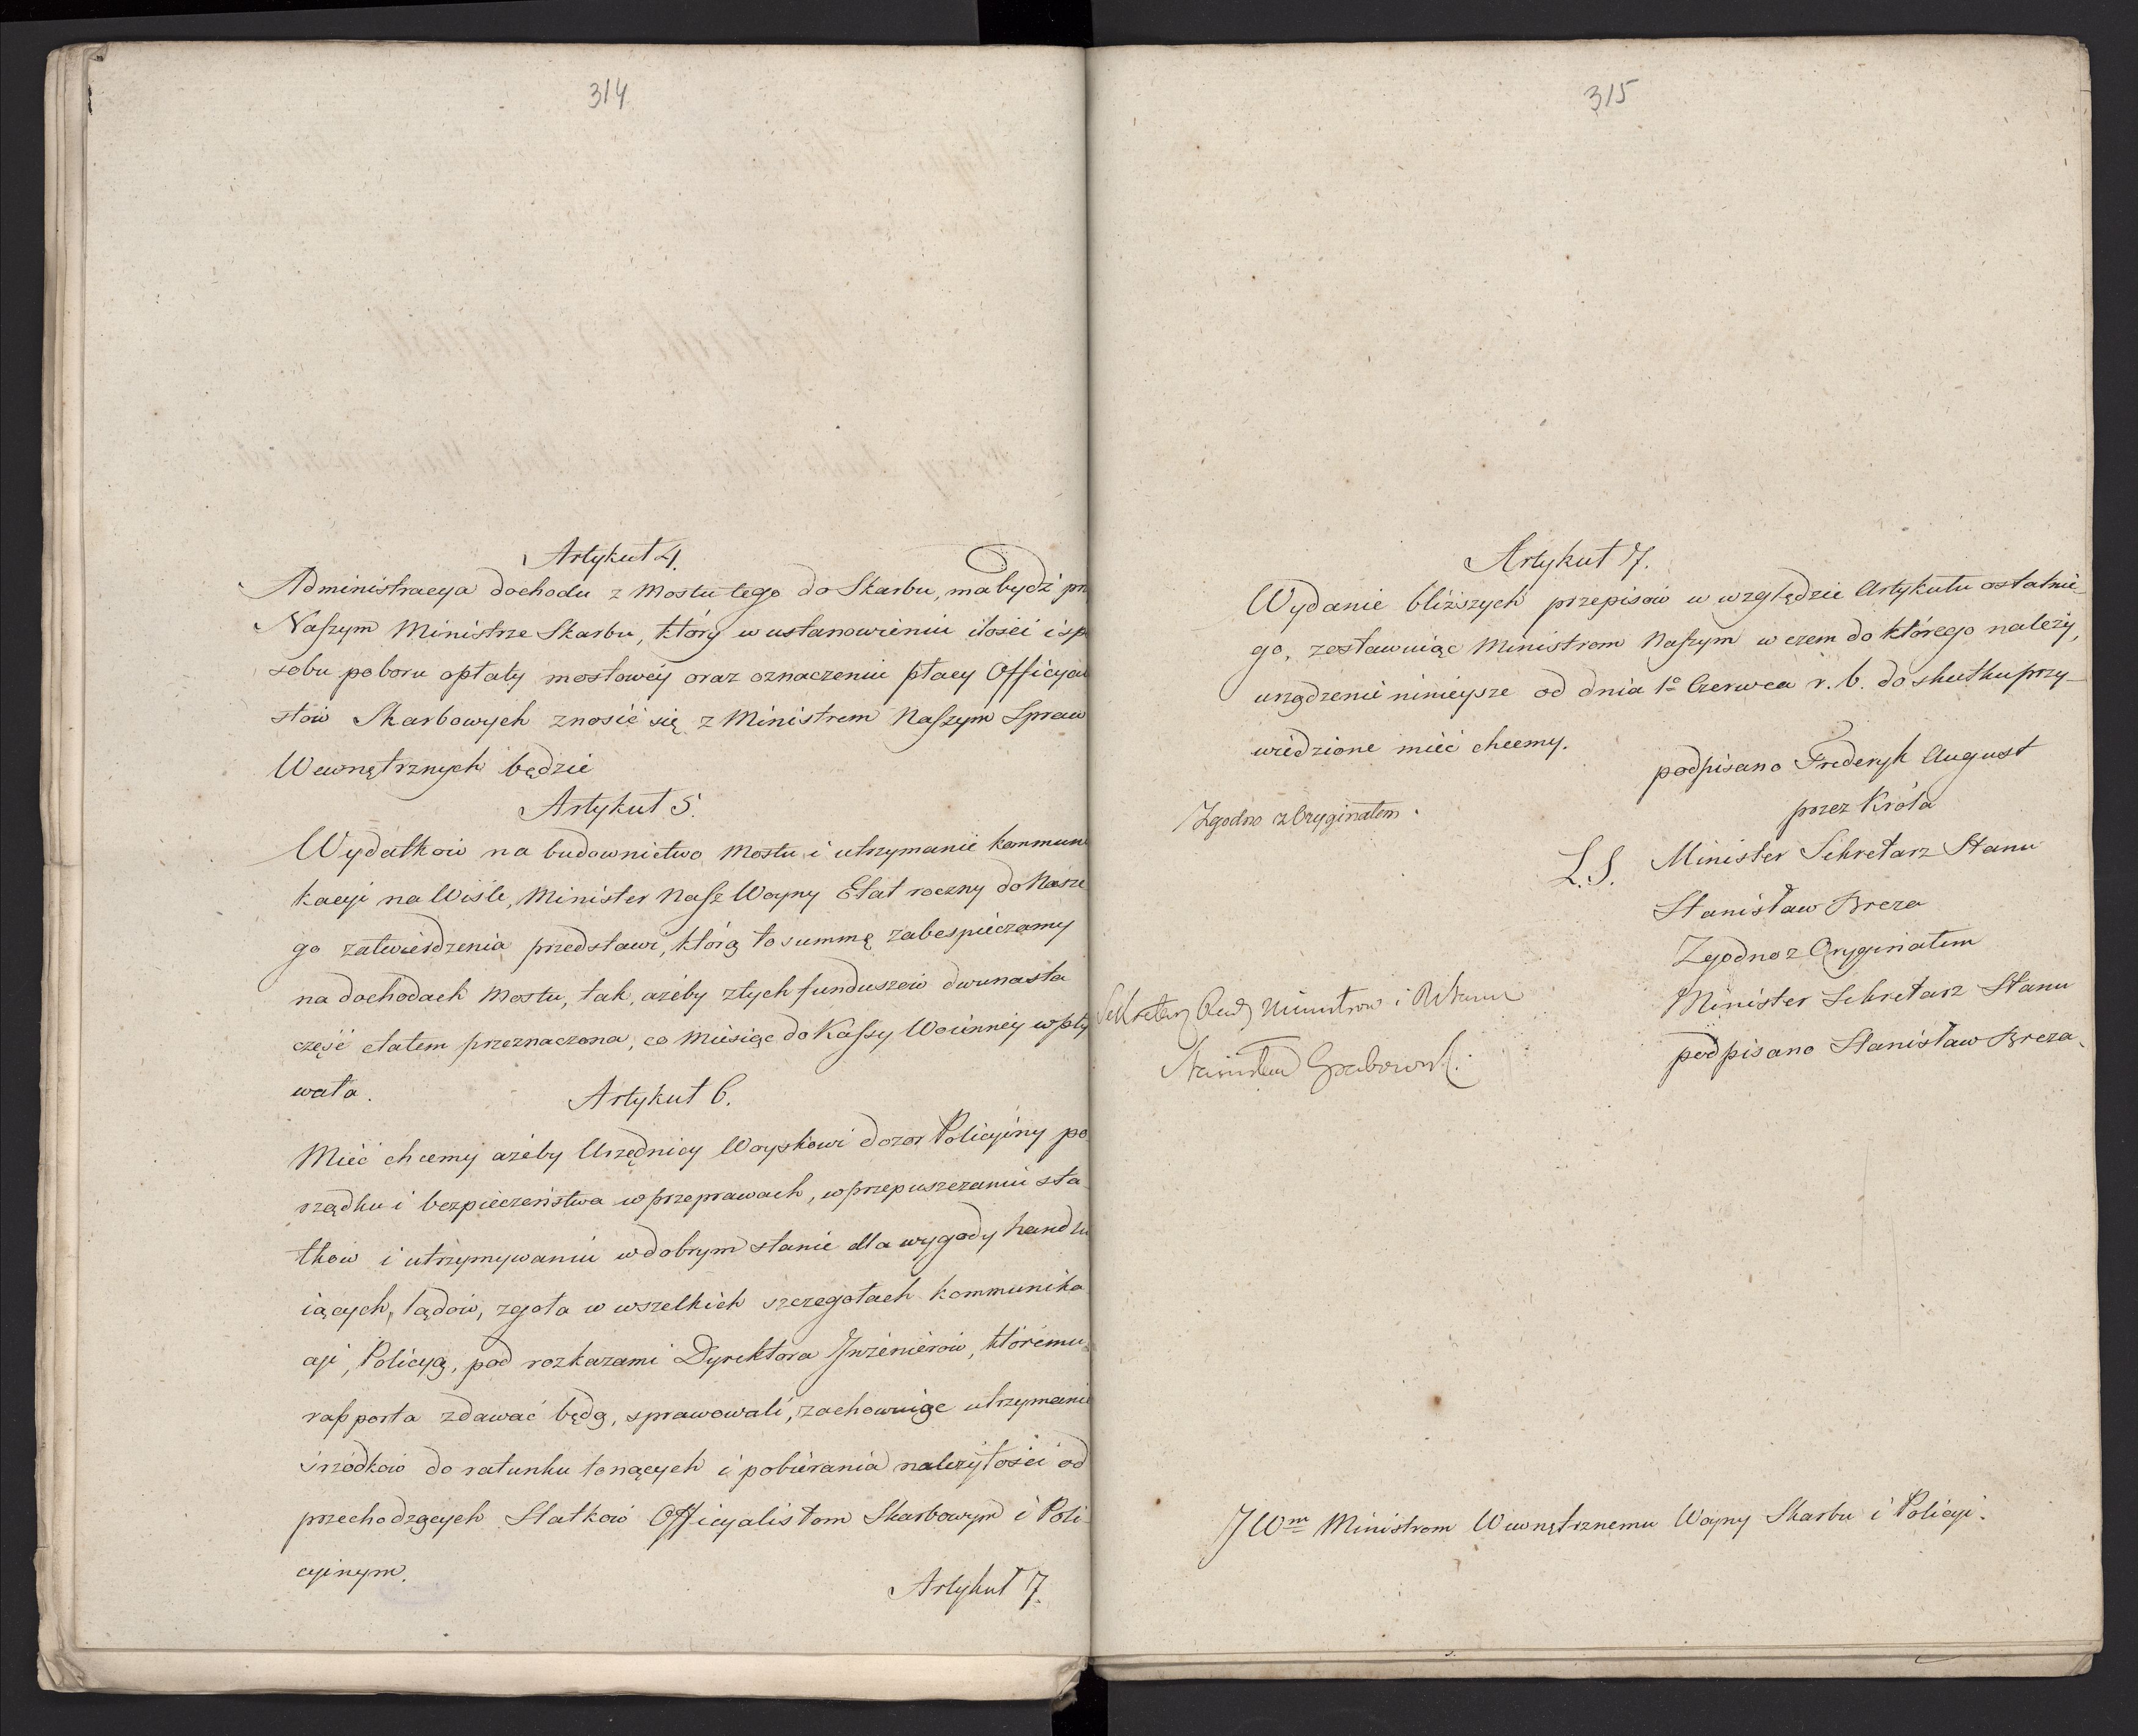 314
Artykuł 4.
Administracya dochodu z Mostu tego do Skarbu, ma bydź
Naszym Ministrze Skarbu, który w ustanowieniu ilości i spo
sobu poboru opłaty mostowéy oraz oznaczeniu płacy Officyal
stów Skarbowych znosić się z Ministrem Naszym Spraw
Wewnętrznych będzie
Artykuł 5.
Wydatków na budownictwo Mostu i utrzymanie kommuni
kacyi na Wiśle, Minister Nasz Woyny Etat roczny do Nasze
go zatwierdzenia przedstawi, którą to summę zabespieczamy
na dochodach Mostu, tak, ażeby z tych funduszów dwunasta
część etatem przeznaczona, co miesiąc do Kassy Woienney wpły
wała.
Artykuł 6.
Mieć chcemy ażeby Urzędnicy Woyskowi dozor Policyiny po
rządku i bezpieczeństwa w przeprawach, w przepuszczaniu sta
tków i utrzymywaniu w dobrym stanie dla wygody handlu
iących, lądów, zgoła w wszelkich szczegołach kommunika
cyi, Policyą, pod rozkazami Dyrektora Inżenierów, któremu
rapporta zdawać będą, sprawowali, zachowuiąc utrzymanie
śrzodków do ratunku tonących i pobierania należytości od
przechodzących Statków Officyalistom Skarbowym i Poli
cyinym.
Artykuł 7.
315
Artykuł 7.
Wydanie bliższych przepisów w względzie Artykułu ostatnie_
go, zostawuiąc Ministrom Naszym w czem do którego należy,
urządzenie ninieysze od dnia 1º Czerwca r. b. do skutku przy_
wiedzione mieć chcemy.
podpisano Frederyk August
przez Króla
Zgodno z Oryginałem.
L.S. Minister Sekretarz Stanu
Stanisław Breza
Zgodno z Oryginałem
Minister Sekretarz Stanu
podpisano Stanisław Breza.
Sekretarz Rady Ministrow i R Stanu
Stanisław Grabowski.
JWm Ministrom Wewnętrznemu Woyny Skarbu i Policyi.